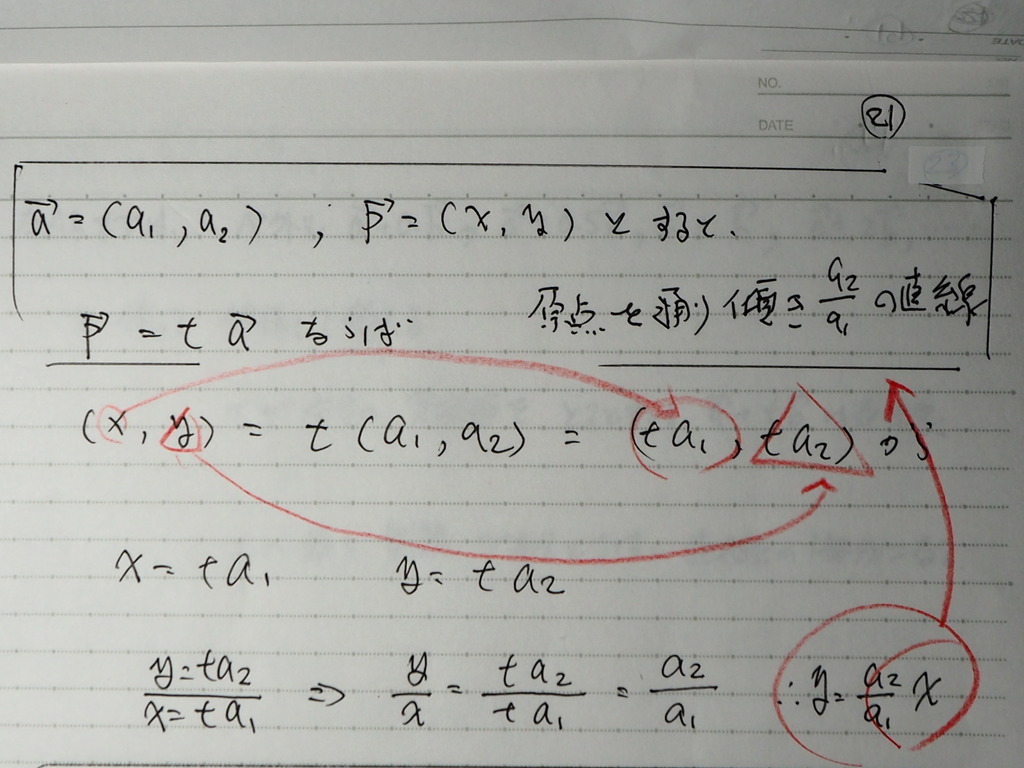 NO.
DATE
21
23
a⃗ = (a₁, a₂) ; P⃗ = (x, y) とすると、
P⃗ = t a⃗ ならば 原点を通り傾き a₂/a₁ の直線
(x, y) = t (a₁, a₂) = (ta₁, ta₂) から
x = ta₁ y = ta₂
y=ta₂/x=ta₁ ⇒ y/x = ta₂/ta₁ = a₂/a₁ ∴ y = a₂/a₁ x